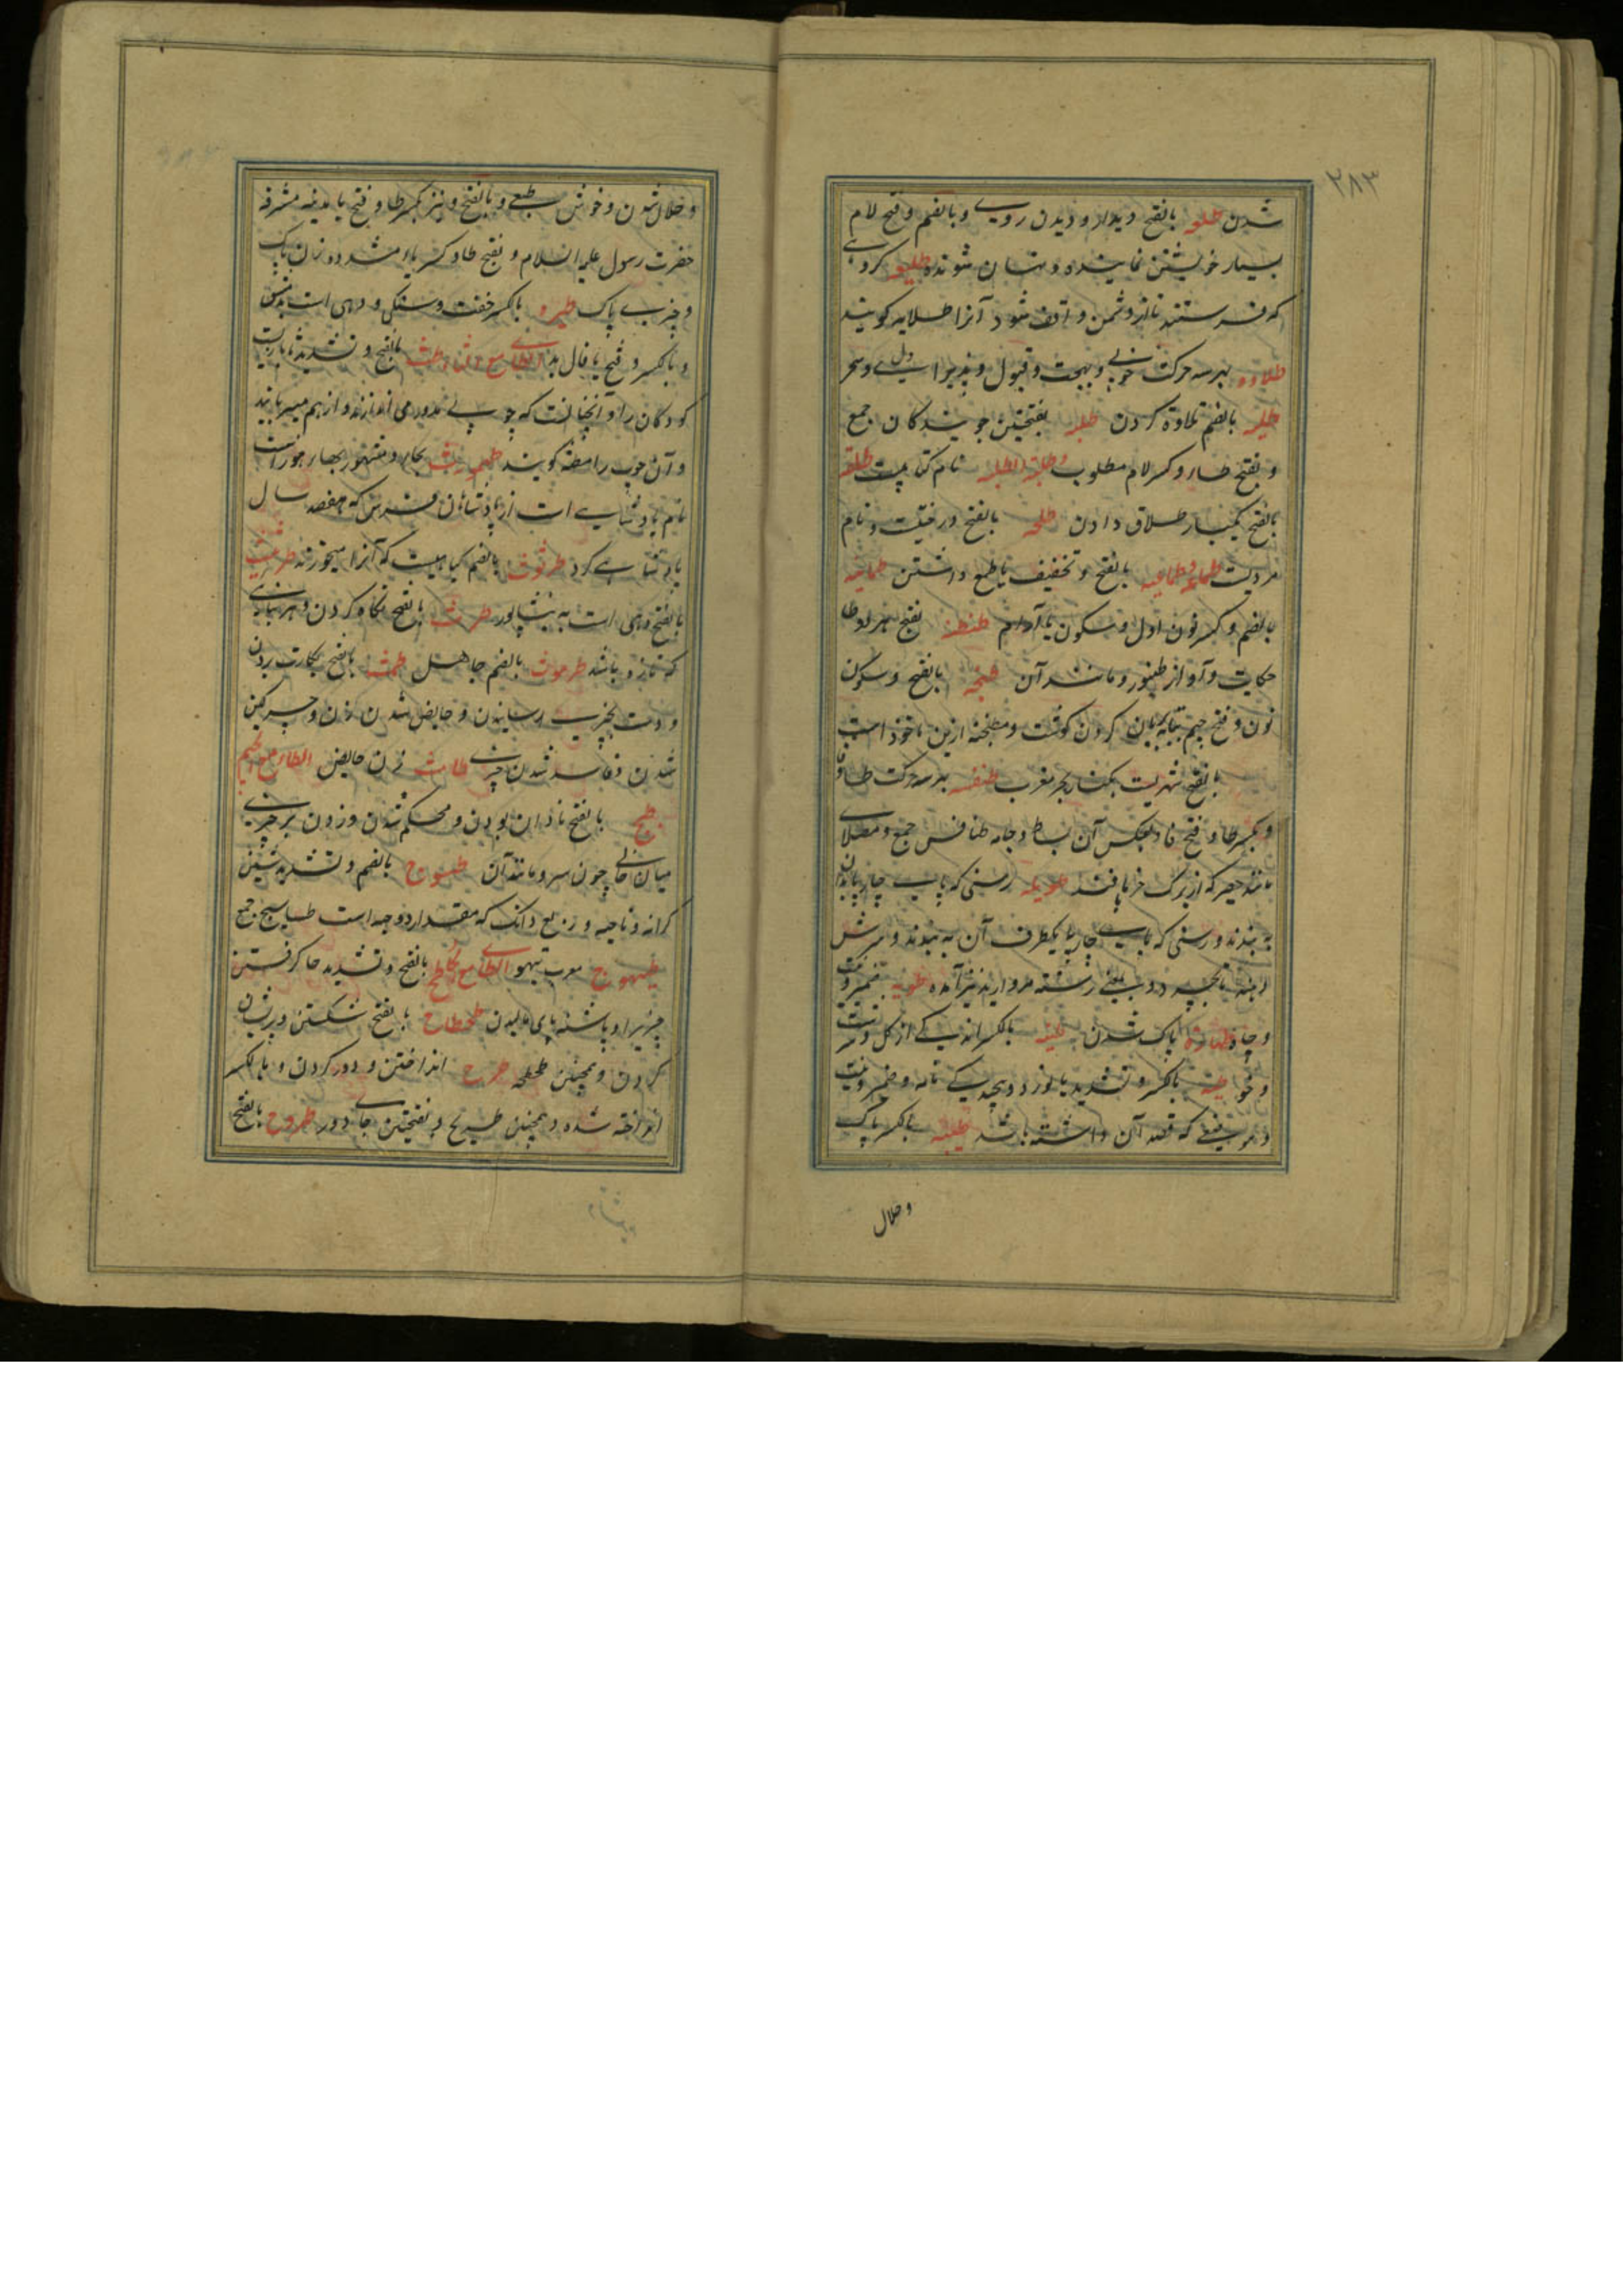 ۲۸۳
شدن طلعه بالفتح دیدار و دیدن روی و بالضم و فتح لام
بسیار خویشتن نماینده و پنهان شونده طلیعه گروهی
که فرستند تا از دشمن واقف شود آنرا طلایه گویند
طلاوه بهر سه حرکت خوبی و بهجت و قبول و پذیرایی دل و سحر
بالضم تلاوة کردن طلبه بفتحتین جویندگان جمع
و بفتح طا و کسر لام مطلوب وطلبة الطلبه نام کتابیست طلقه
بالفتح یکبار طلاق دادن طلحه بالفتح درختیست و نام
مردیست طماعه وطماعیه بالفتح و تخفیف یا طمع داشتن طمانینه
بالضم و کسر نون اول و سکون یا آرام طنطنه بفتح هر دو طا
حکایت و آواز طنبور و مانند آن بالفتح و سکون
نون و فتح جیم بتابه بریان کردن گوشت و مطنجنه ازین ماخوذ است
بالفتح شهریست بکنار بحر مغرب طنفسه بهر سه حرکت طا و فا
و بکسر طا و فتح فا و بعکس آن بساط و جامه طنافس جمع و مصلای
مانند حصیر که از برگ خرما بافند طویله رسنی که پای چارپایان بدان
به بندند و رسنی که پای چارپا یکطرف آن به بندند و سرش
بمعنی رشته مروارید نیز آمده طویه ضمیر و نیت
و چاه طهارة پاک شدن طینه بالکسر اندکی از گل و سرشت
و خو طیه بالکسر و تشدید یا نورد و پیچیدگی نامه و ضمیر و نیت
و موضعی که قصد آن داشته باشد طیبه بالکسر پاک
وحلال
وحلال شدن و خوش طبعی و بالفتح و نیز بکسر طا و فتح یا مدینه مشرفه
حضرت رسول علیه السلام و بفتح طا و کسر یاء مشدد زن پاک
و چیزی پاک طیره بالکسر خفت و سبکی و دهی است بدمشق
و بالکسر و فتح یا فال بد الطاء مع الثاء طث بالفتح و تشدید ثا بازیست
کودکان را و آنچنانست که چوبی مدور می اندازند و از هم میربایند
و آن چوب را مطثه گویند طهمورث
نام پادشاهی است از پادشاهان فرس که هفتصد سال
پادشاهی کرد طرثوث بالضم گیاهیست که آنرا میخورند طرثیث
بالفتح دهی است به نیشاپور بالفتح نگاه کردن و هر نباتی
که تازه باشد طرموث بالضم جاهل طمث بالفتح بکارت بردن
و دست بچیزی رسانیدن و حایض شدن زن و چرکین
شدن و فاسد شدن چیزی طامث زن حایض الطاء مع الجیم
طبج بالفتح نادان بودن و محکم شدن و زدن بر چیزی
میان خالی چون سر و مانند آن طسوج بالضم و تشدید سین
کرانه و ناحیه و ربع دانگ که مقدار دو حبه است طساسیج جمع
طیهوج معرب تیهو الطاء مع الحاء طح بالفتح و تشدید حا گرفتن
چیزیرا و پاشنه پای مالیدن طحطاح بالفتح شکستن و پریشان
کردن و همچنین طحطحه طرح انداختن و دور کردن و بالکسر
انداخته شده و همچنین طریح و بفتحتین جای دور طروح بالفتح